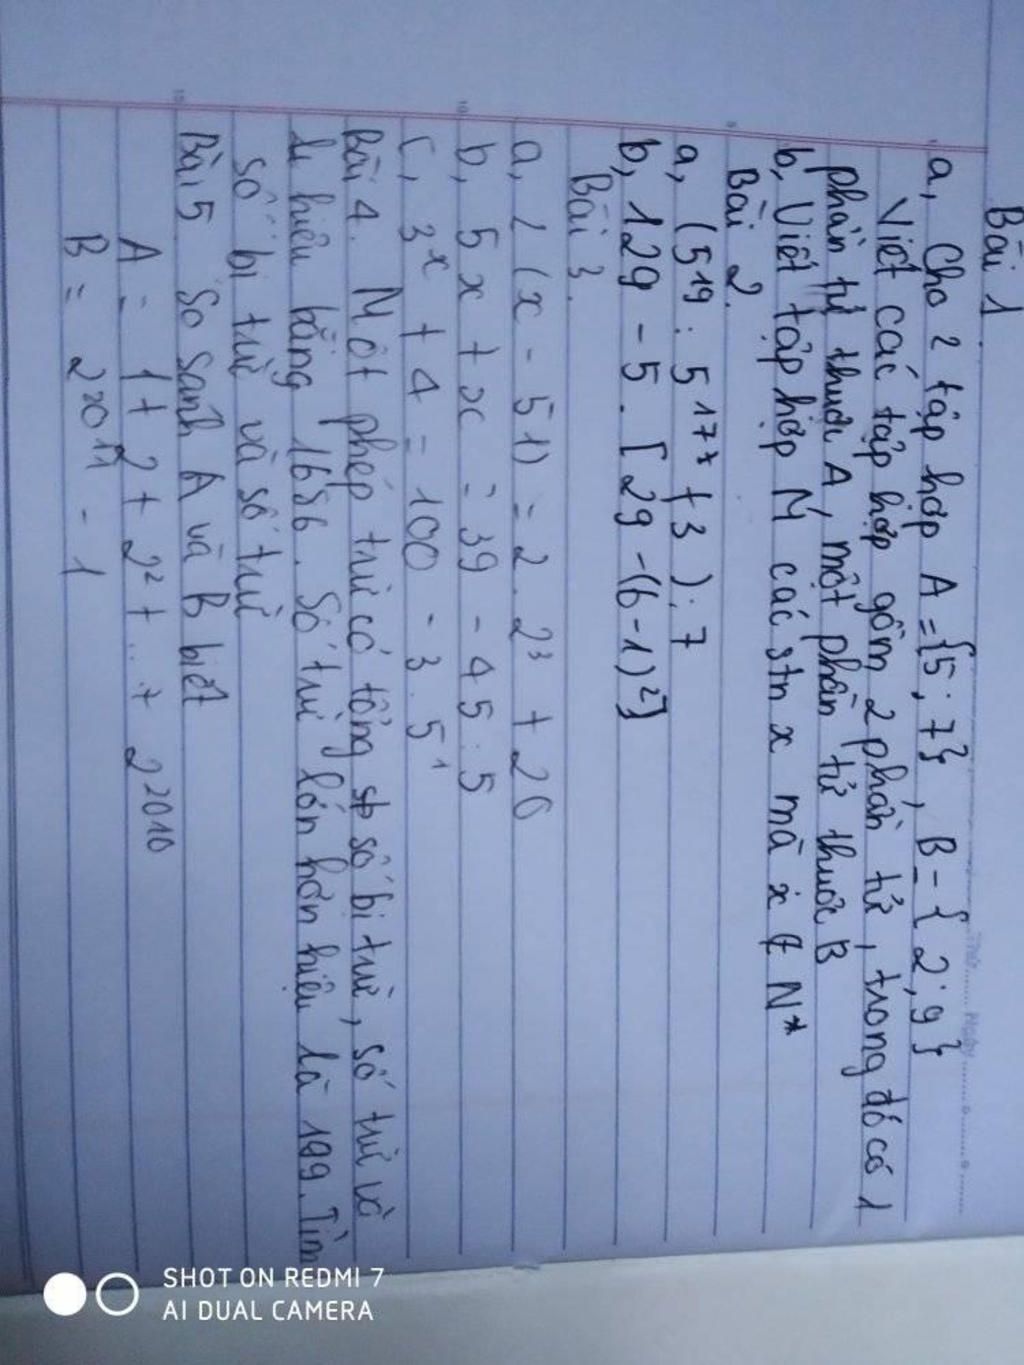 Bài 1
a, Cho 2 tập hợp A = {5; 7}, B = {2; 9}
Viết các tập hợp gồm 2 phần tử, trong đó có 1
phần tử thuộc A, một phần tử thuộc B
b, Viết tập hợp M các stn x mà x ∉ N*
Bài 2.
a, (5¹⁹ : 5¹⁷ + 3) : 7
b, 129 - 5 . [29 - (6 - 1)²]
Bài 3.
a, 2 (x - 51) = 2 . 2³ + 20
b, 5x + x = 39 - 45 : 5
c, 3ˣ + 4 = 100 - 3 . 5¹
Bài 4. Một phép trừ có tổng số bị trừ, số trừ và
hiệu bằng 1686. Số trừ lớn hơn hiệu là 199. Tìm
số bị trừ và số trừ
Bài 5 So sánh A và B biết
A = 1 + 2 + 2² + ... + 2²⁰¹⁰
B = 2²⁰¹¹ - 1
SHOT ON REDMI 7
AI DUAL CAMERA